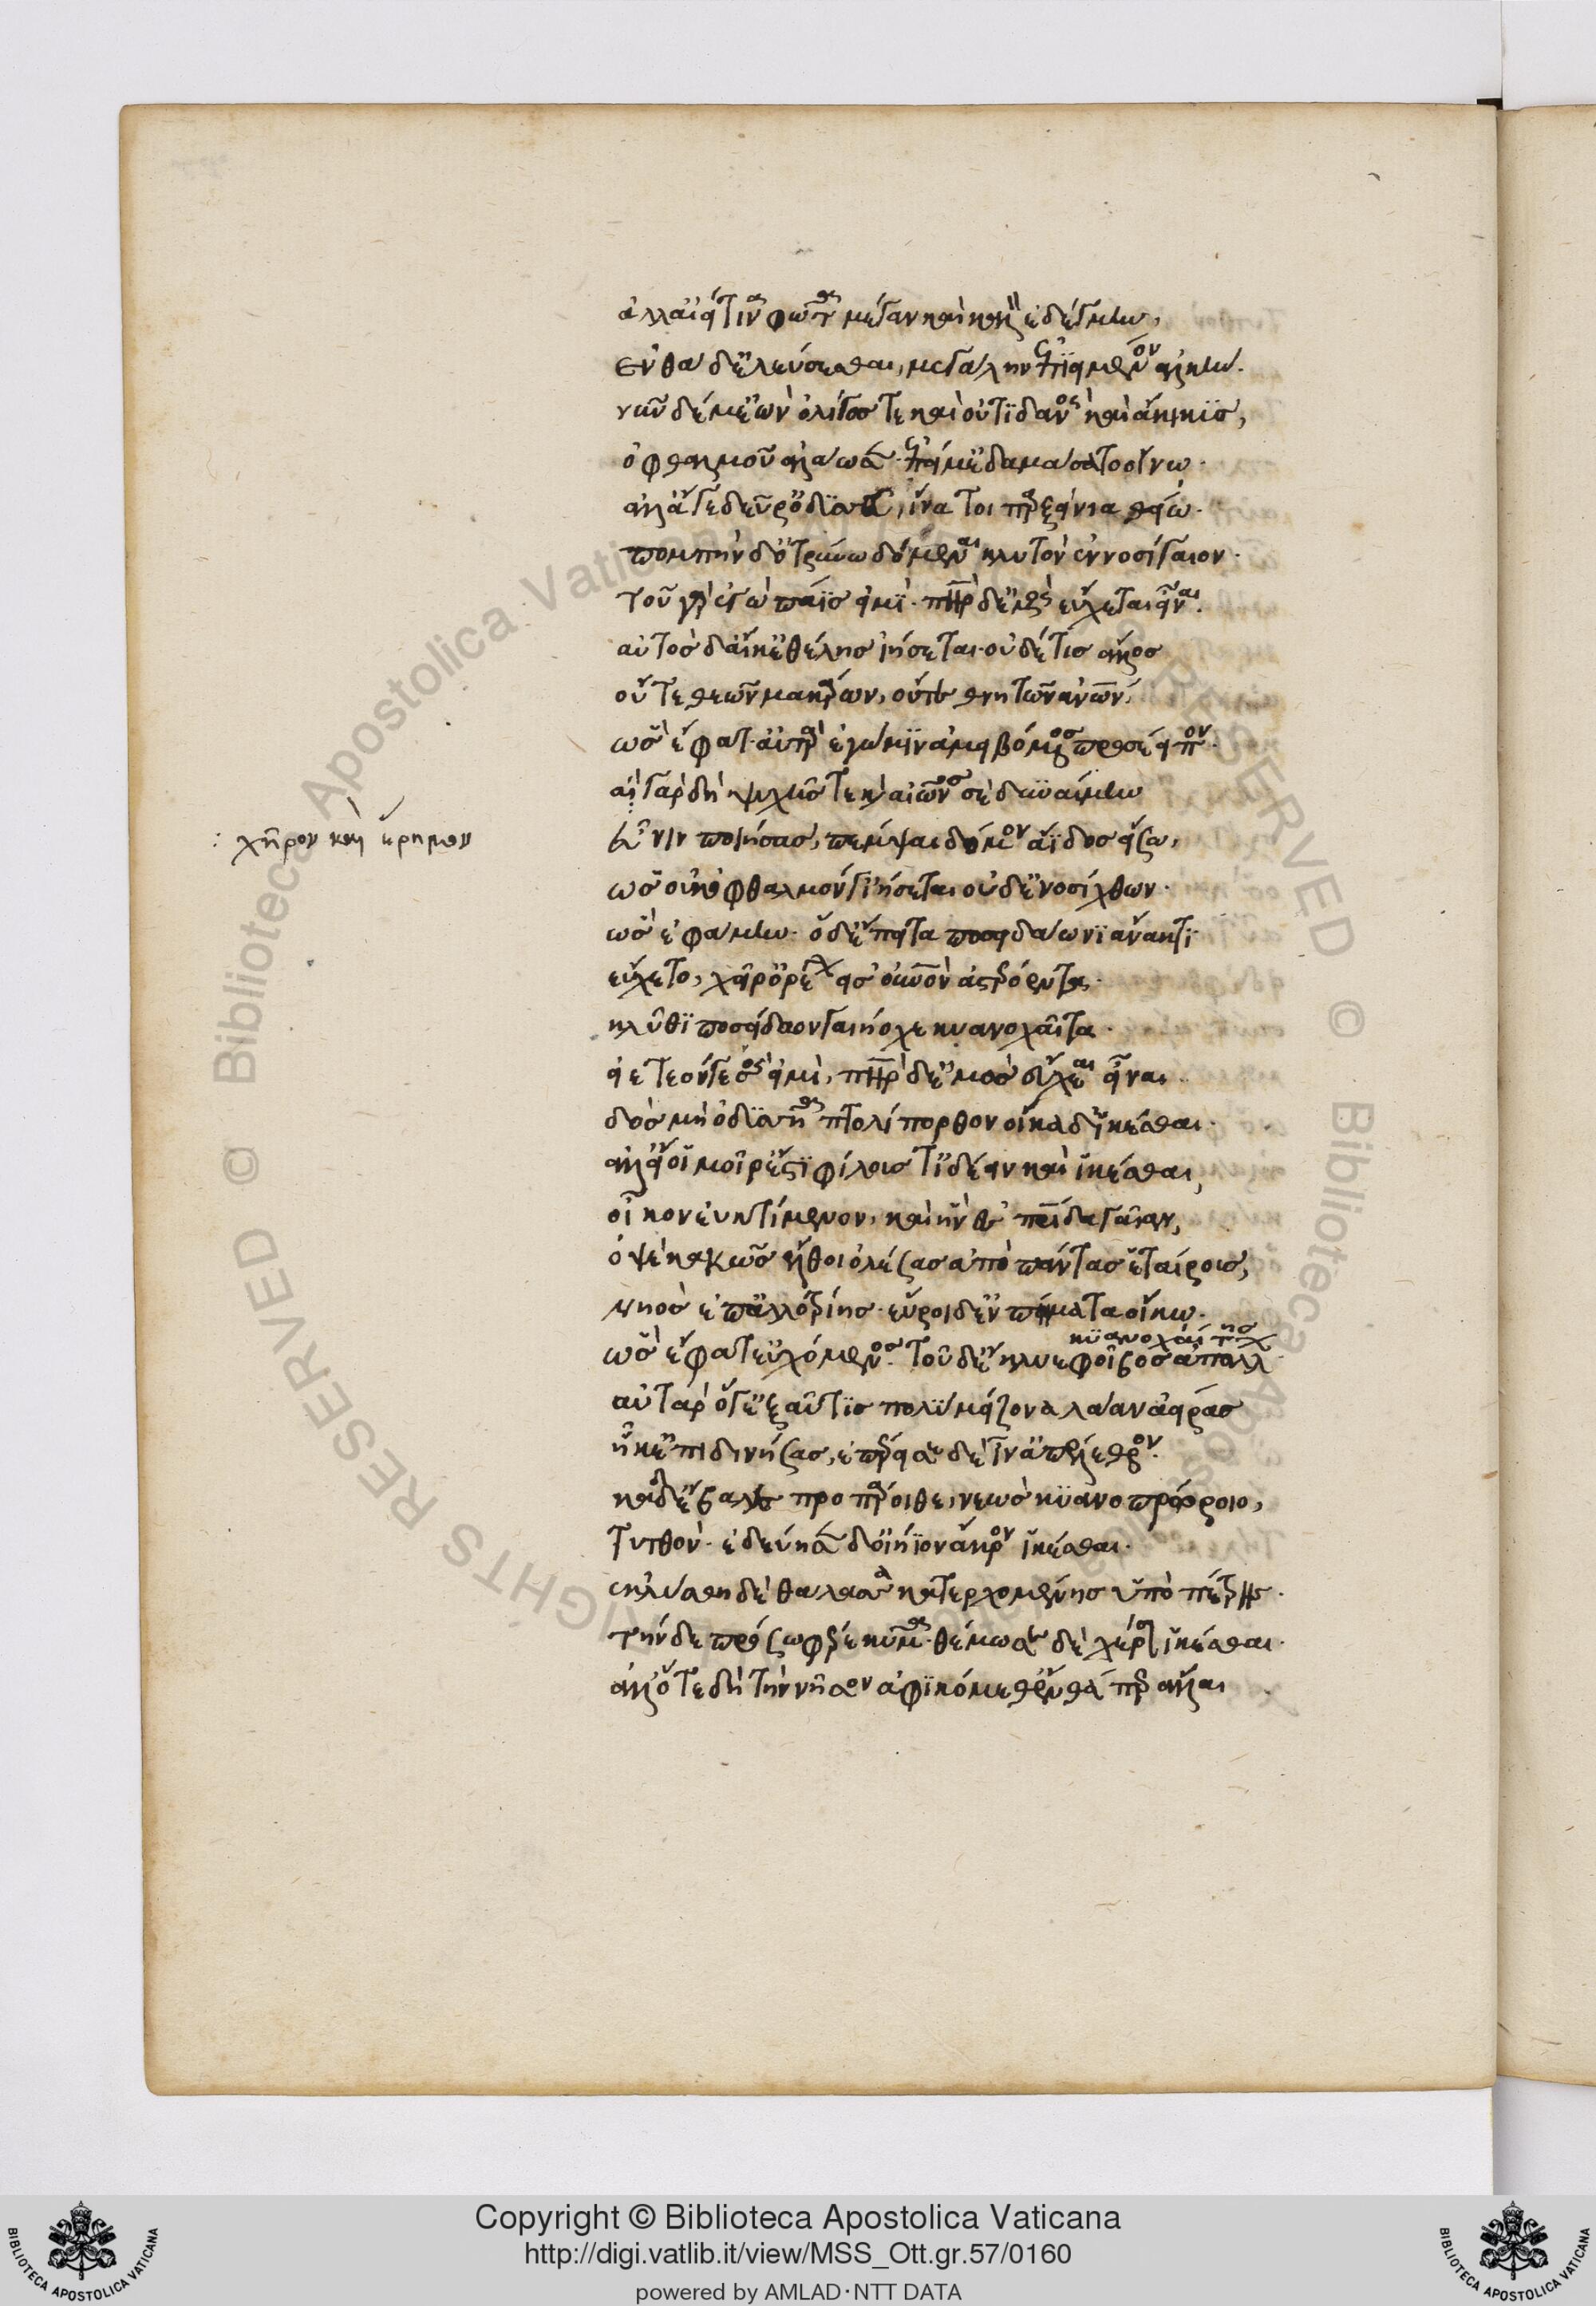 ἀλλ' αἰεί τινα φῶτα μέγαν καὶ καλὸν ἐδέγμην,
ἐνθάδ' ἐλεύσεσθαι, μεγάλην ἐπιειμένον ἀλκήν.
νῦν δέ μ' ἐὼν ὀλίγος τε καὶ οὐτιδανὸς καὶ ἄκικυς,
ὀφθαλμοῦ ἀλάωσεν· ἐπεί μ' ἐδαμάσσατο οἴνω.
ἀλλ' ἄγε δεῦρ' ὀδυσσεῦ, ἵνα τοι πὰρ ξείνια θείω.
πομπήν δ' ὀτρύνω δόμεναι κλυτὸν ἐννοσίγαιον.
τοῦ γὰρ ἐγὼ πάϊς εἰμί. πατὴρ δ' ἐμὸς εὔχεται εἶναι.
αὐτὸς δ' αἴ κ' ἐθέλησ' ἰήσεται· οὐδέ τις ἄλλος
οὔτε θεῶν μακάρων, οὔτε θνητῶν ἀνθρώπων.
ὣς ἔφατ'· αὐτὰρ ἐγώ μιν ἀμειβόμενος προσέειπον.
αἲ γὰρ δὴ ψυχῆς τε καὶ αἰῶνος σὲ δυναίμην
εὖνιν ποιήσας, πέμψαι δόμον ἄϊδος εἴσω,
: χῆρον καὶ ἔρημον
ὡς οὐκ ὀφθαλμόν γ' ἰήσεται οὐδ' ἐνοσίχθων.
ὣς ἐφάμην. ὁ δ' ἔπειτα ποσειδάωνι ἄνακτι
εὔχετο, χεῖρ' ὀρέγων εἰς οὐρανὸν ἀστερόεντα.
κλῦθι ποσείδαον γαιήοχε κυανοχαῖτα.
εἰ ἐτεόν γε σός εἰμι, πατὴρ δ' ἐμὸς εὔχεαι εἶναι.
δὸς μὴ ὀδυσσῆα πτολίπορθον οἴκαδ' ἱκέσθαι.
ἀλλ' εἴ οἱ μοῖρ' ἐστὶ φίλους τ' ἰδέειν καὶ ἱκέσθαι,
οἶκον ἐυκτίμενον, καὶ ἣν ἐς πατρίδα γαῖαν,
ὀψὲ κακῶς ἔλθοι ὀλέσας ἄπο πάντας ἑταίρους,
νηὸς ἐπ' ἀλλοτρίης. εὕροι δ' ἐν πήματα οἴκω.
κυανοχαίτης
ὣς ἔφατ' εὐχόμενος. τοῦ δ' ἔκλυε φοῖβος ἀπόλλ
αὐτὰρ ὅγ' ἐξαῦτις πολὺ μείζονα λᾶαν ἀείρας
ἧκ' ἐπιδινήσας, ἐπέρεισε δὲ ἶν' ἀπέλεθρον.
κὰδ δ' ἔβαλε προπάροιθε, νεὼς κυανοπρώροιο,
τυτθόν. ἐδεύησεν δ' οἰήϊον ἄκρον ἱκέσθαι.
ἐκλύσθη δὲ θάλασσα κατερχομένης ὑπὸ πέτρης.
τὴν δὲ πρόσω φέρε κῦμα. θέμωσε δὲ χέρσον ἱκέσθαι.
ἀλλ' ὅτε δὴ τὴν νῆσον ἀφικόμεθ' ἔνθά περ ἄλλαι
Copyright © Biblioteca Apostolica Vaticana
http://digi.vatlib.it/view/MSS_Ott.gr.57/0160
powered by AMLAD·NTT DATA